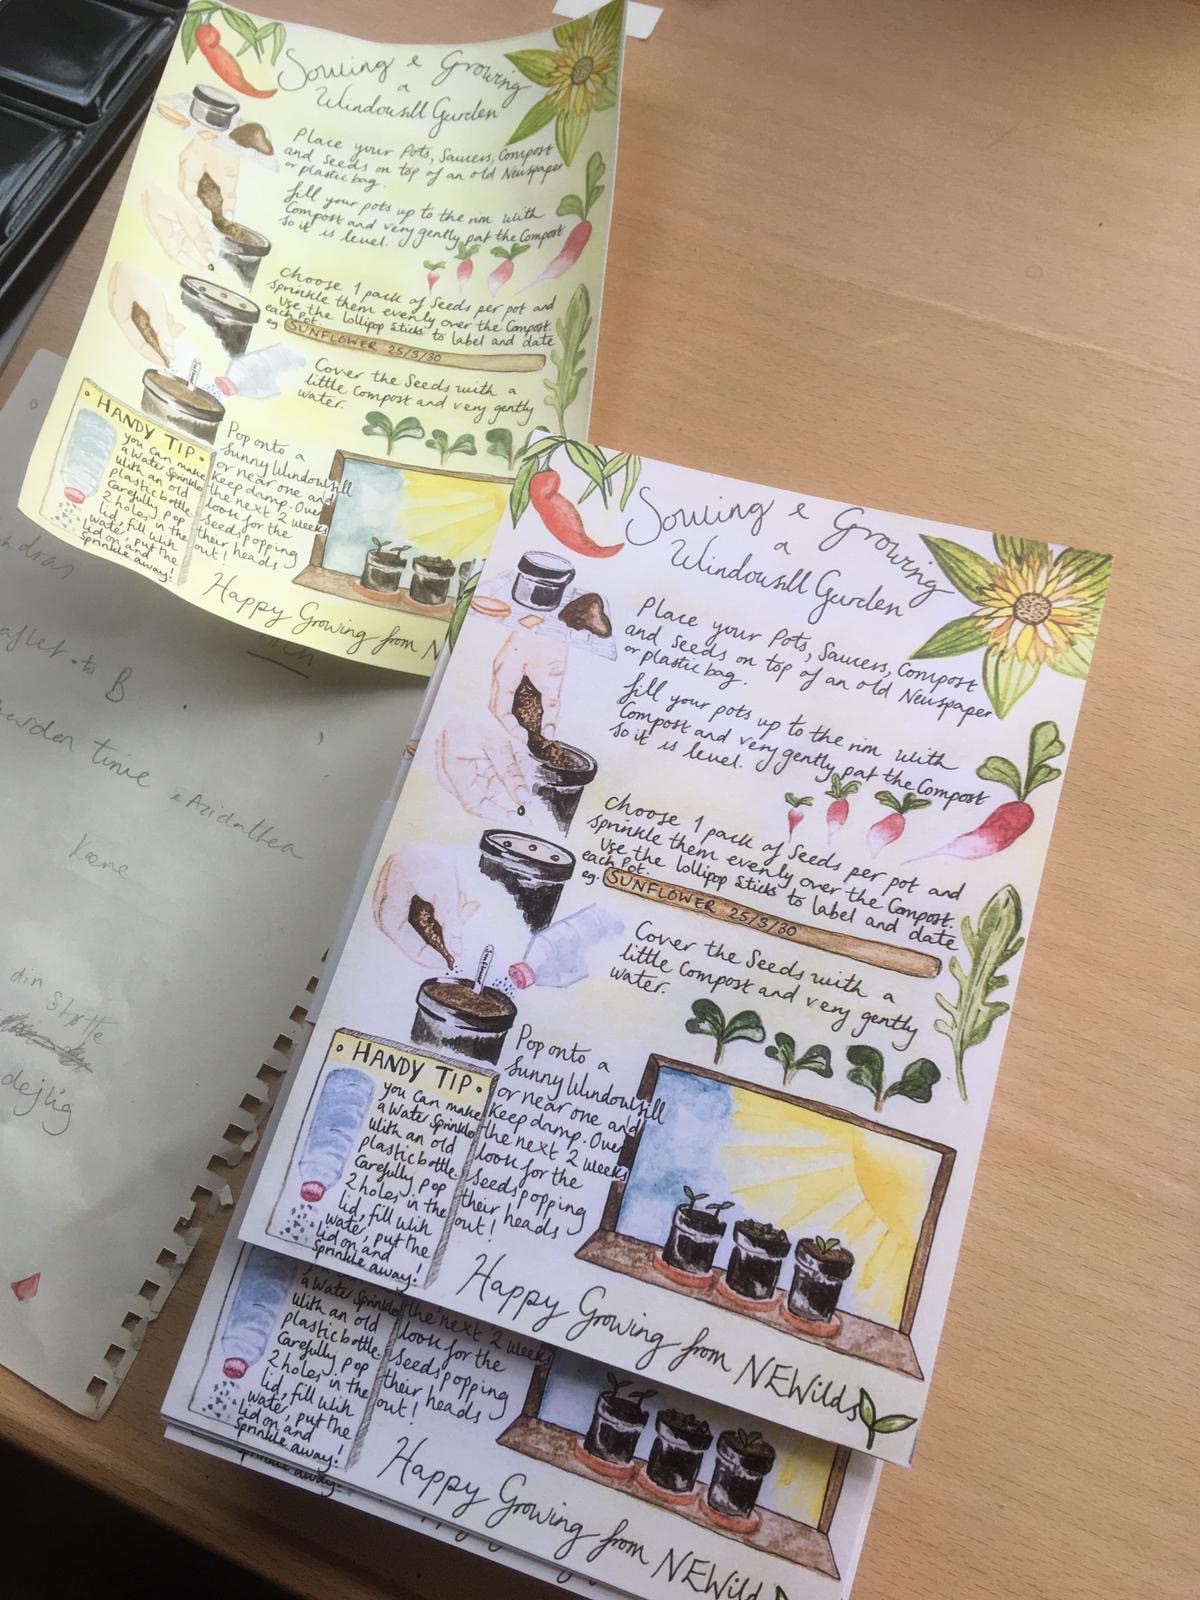 Sowing & Growing
a
Windowsill Garden
Place your Pots, Saucers, Compost
and Seeds on top of an old Newspaper
or plastic bag.
fill your pots up to the rim with
Compost and very gently pat the Compost
so it is level.
choose 1 pack of Seeds per pot and
sprinkle them evenly over the Compost.
Use the lollipop Sticks to label and date
each pot.
eg. SUNFLOWER 25/3/30
Cover the Seeds with a
little Compost and very gently
water.
HANDY TIP
you can make
a Water Sprinkler
with an old
plastic bottle.
Carefully pop
2 holes in the
lid, fill with
water, put the
lid on and
Sprinkle away!
Pop onto a
Sunny Windowsill
or near one and
Keep damp. Over
the next 2 weeks
look for the
Seeds popping
their heads
out!
Happy Growing from N
Sowing & Growing
a
Windowsill Garden
Place your Pots, Saucers, Compost
and Seeds on top of an old Newspaper
or plastic bag.
fill your pots up to the rim with
Compost and very gently pat the Compost
so it is level.
choose 1 pack of Seeds per pot and
sprinkle them evenly over the Compost.
Use the lollipop Sticks to label and date
each pot.
eg. SUNFLOWER 25/3/30
Cover the Seeds with a
little Compost and very gently
water.
HANDY TIP
you can make
a Water Sprinkler
with an old
plastic bottle.
Carefully pop
2 holes in the
lid, fill with
water, put the
lid on and
Sprinkle away!
Pop onto a
Sunny Windowsill
or near one and
Keep damp. Over
the next 2 weeks
look for the
Seeds popping
their heads
out!
Happy Growing from NEWilds
a Water Sprinkler
with an old
plastic bottle.
Carefully pop
2 holes in the
lid, fill with
water, put the
lid on and
Sprinkle away!
the next 2 weeks
look for the
Seeds popping
their heads
out!
Happy Growing from NEWild
Sprinkle away!
to B
tinie
Kæne
din Støtte
dejlig